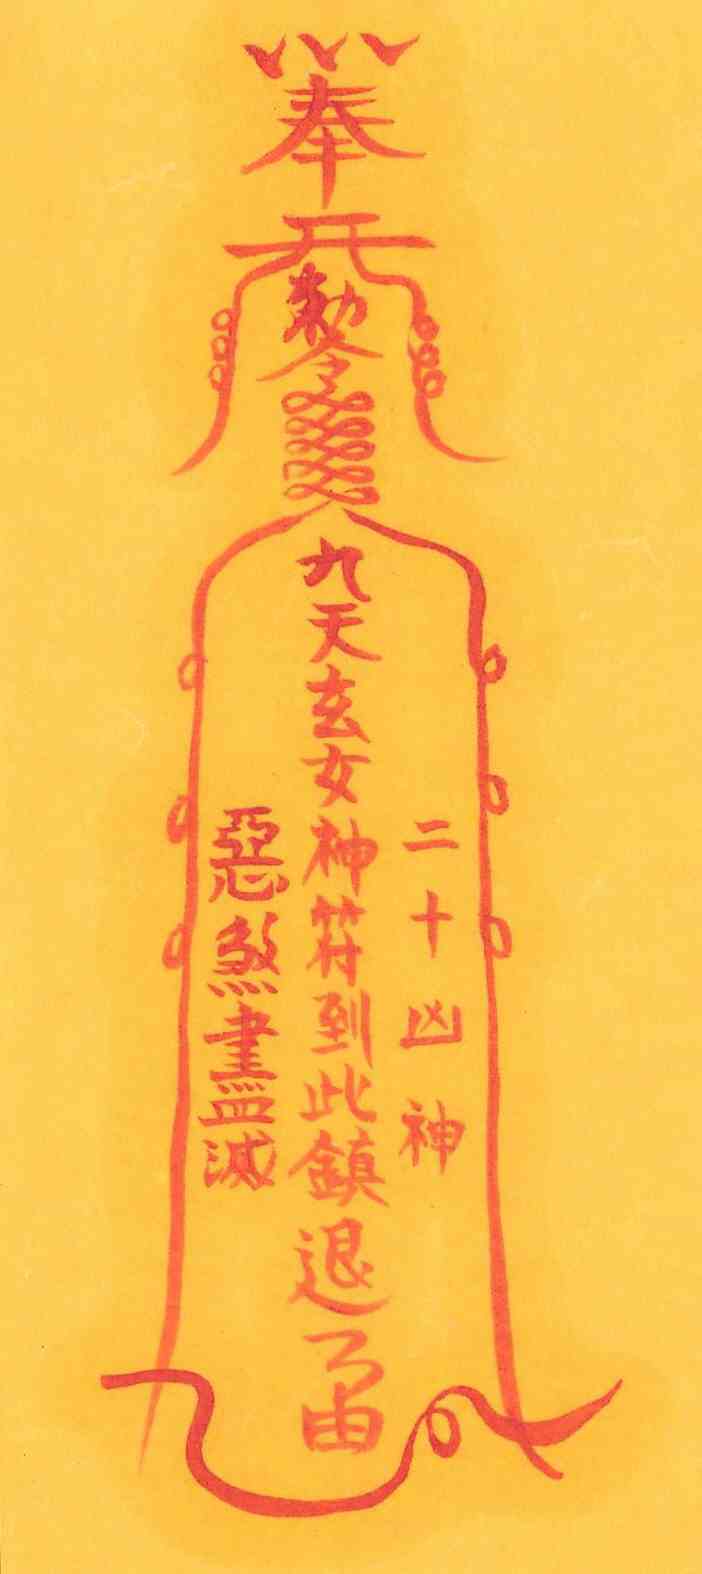 奉
勅令
九天玄女神符到此鎮退
二十凶神
惡煞盡滅